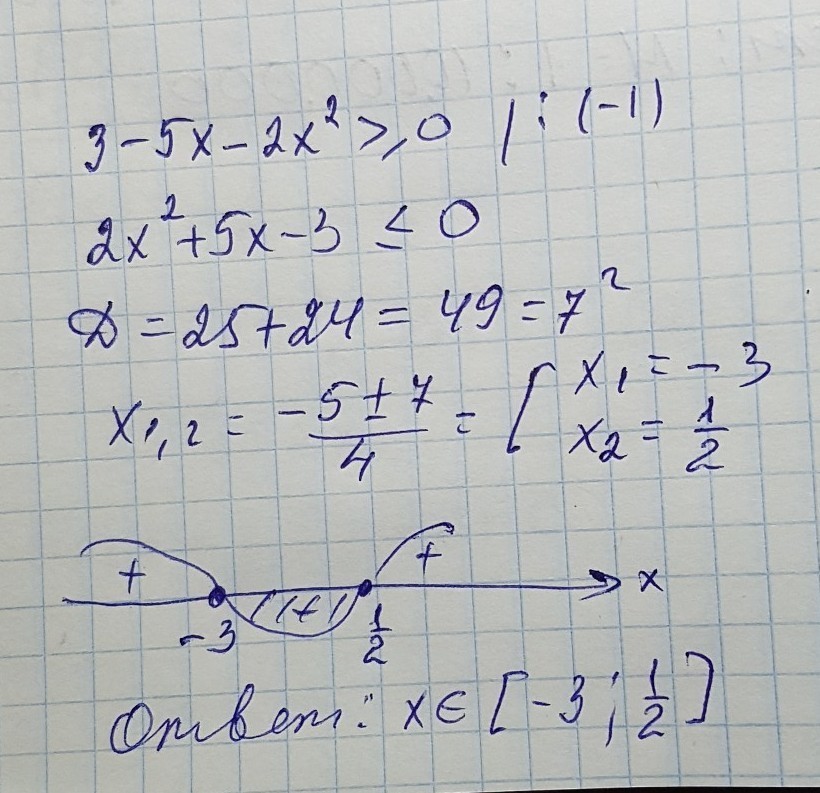 3 - 5x - 2x² ≥ 0 | : (-1)
2x² + 5x - 3 ≤ 0
D = 25 + 24 = 49 = 7²
x₁,₂ = (-5 ± 7)/4 = [ x₁ = -3
x₂ = 1/2
+ +
-3 1/2 x
Ответ: x ∈ [-3; 1/2]